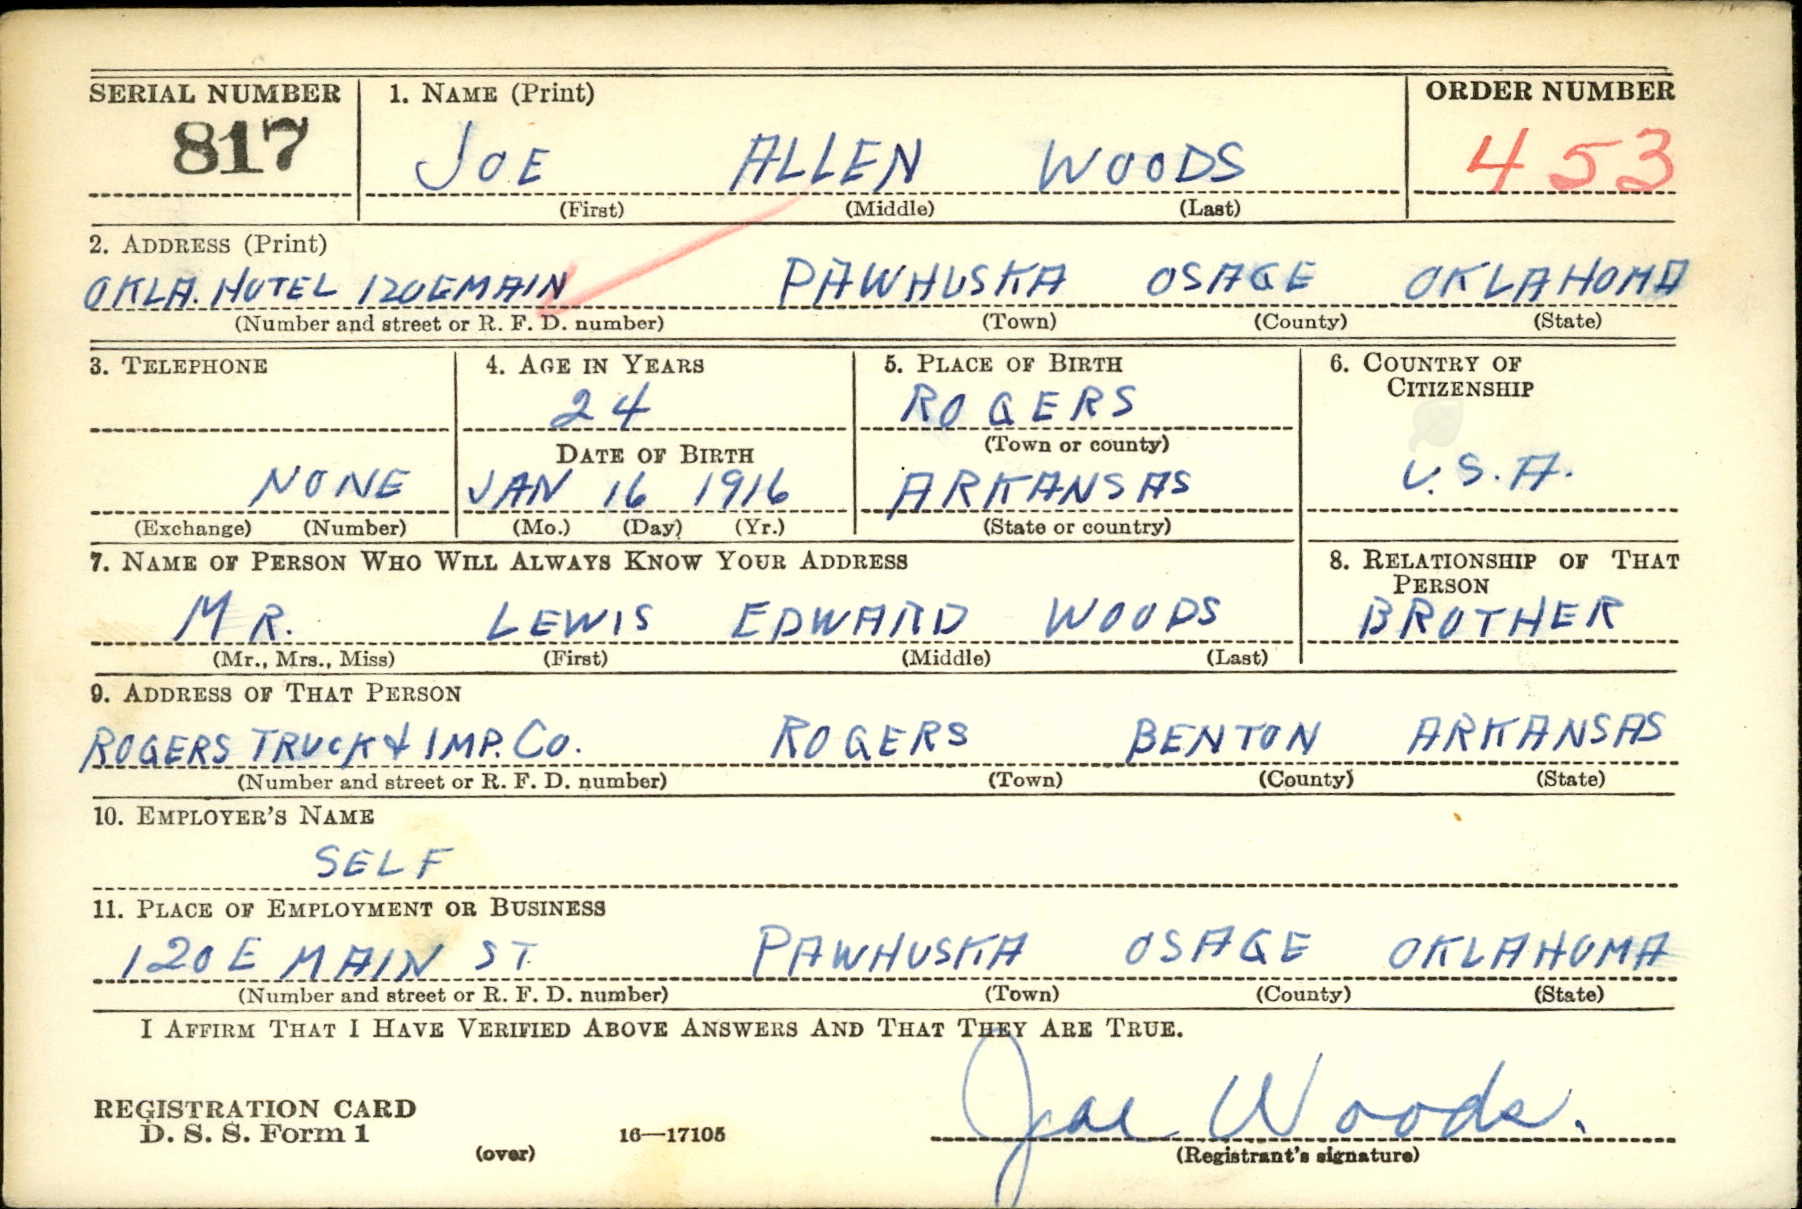 SERIAL NUMBER 1. NAME (Print) ORDER NUMBER
817 JOE ALLEN WOODS 453
(First) (Middle) (Last)
2. ADDRESS (Print)
OKLA. HOTEL 120 E MAIN PAWHUSKA OSAGE OKLAHOMA
(Number and street or R. F. D. number) (Town) (County) (State)
3. TELEPHONE 4. AGE IN YEARS 5. PLACE OF BIRTH 6. COUNTRY OF
CITIZENSHIP
24 ROGERS
(Town or county)
DATE OF BIRTH
NONE JAN 16 1916 ARKANSAS U.S.A.
(Exchange) (Number) (Mo.) (Day) (Yr.) (State or country)
7. NAME OF PERSON WHO WILL ALWAYS KNOW YOUR ADDRESS 8. RELATIONSHIP OF THAT
PERSON
MR. LEWIS EDWARD WOODS BROTHER
(Mr., Mrs., Miss) (First) (Middle) (Last)
9. ADDRESS OF THAT PERSON
ROGERS TRUCK & IMP. CO. ROGERS BENTON ARKANSAS
(Number and street or R. F. D. number) (Town) (County) (State)
10. EMPLOYER'S NAME
SELF
11. PLACE OF EMPLOYMENT OR BUSINESS
120 E MAIN ST. PAWHUSKA OSAGE OKLAHOMA
(Number and street or R. F. D. number) (Town) (County) (State)
I AFFIRM THAT I HAVE VERIFIED ABOVE ANSWERS AND THAT THEY ARE TRUE.
Joe Woods.
REGISTRATION CARD
D. S. S. Form 1 16—17105
(over) (Registrant's signature)